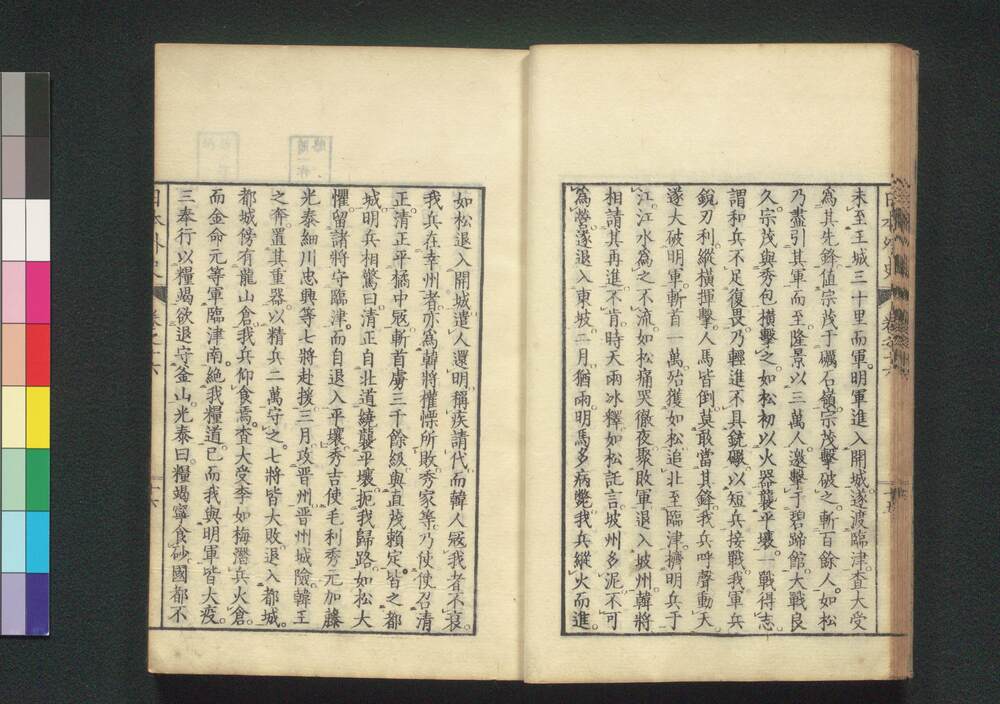 未至王城三十里而軍。明軍進入開城。遂渡臨津。查大受
爲其先鋒。値宗茂于礪石嶺。宗茂擊破之。斬百餘人。如松
乃盡引其軍而至。隆景以三萬人邀擊于碧蹄館。大戰良
久。宗茂與秀包橫擊之。如松初以火器襲平壤。一戰得志。
謂和兵不足復畏。乃輕進不具銃礮。以短兵接戰。我軍兵
鋭刃利。縱橫揮擊。人馬皆倒。莫敢當其鋒。我兵呼聲動天。
遂大破明軍。斬首一萬。殆獲如松。追北至臨津。擠明兵于
江。江水爲之不流。如松痛哭徹夜。聚敗軍退入坡州。韓將
相請其再進。不肯。時天雨冰釋。如松託言坡州多泥。不可
爲營。遂退入東坡。二月。猶雨。明馬多病斃。我兵縱火而進。
如松退入開城。遣人還明。稱疾請代。而韓人寇我者不衰。
我兵在幸州者。亦爲韓將權慄所敗。秀家等乃使使召清
正。清正平橘中寇。斬首虜三千餘級。與直茂賴定皆之都
城。明兵相驚曰。清正自北道繞襲平壤。扼我歸路。如松大
懼。留諸將守臨津。而自退入平壤。秀吉使毛利秀元加藤
光泰細川忠興等七將赴援。三月。攻晋州。晋州城險。韓王
之奔。置其重器。以精兵二萬守之。七將皆大敗。退入都城。
都城傍有龍山倉。我兵仰食焉。查大受李如梅潛兵火倉。
而金命元等軍臨津南。絶我糧道。已而我與明軍皆大疫。
三奉行以糧竭欲退守釜山。光泰曰。糧竭寧食砂。國都不